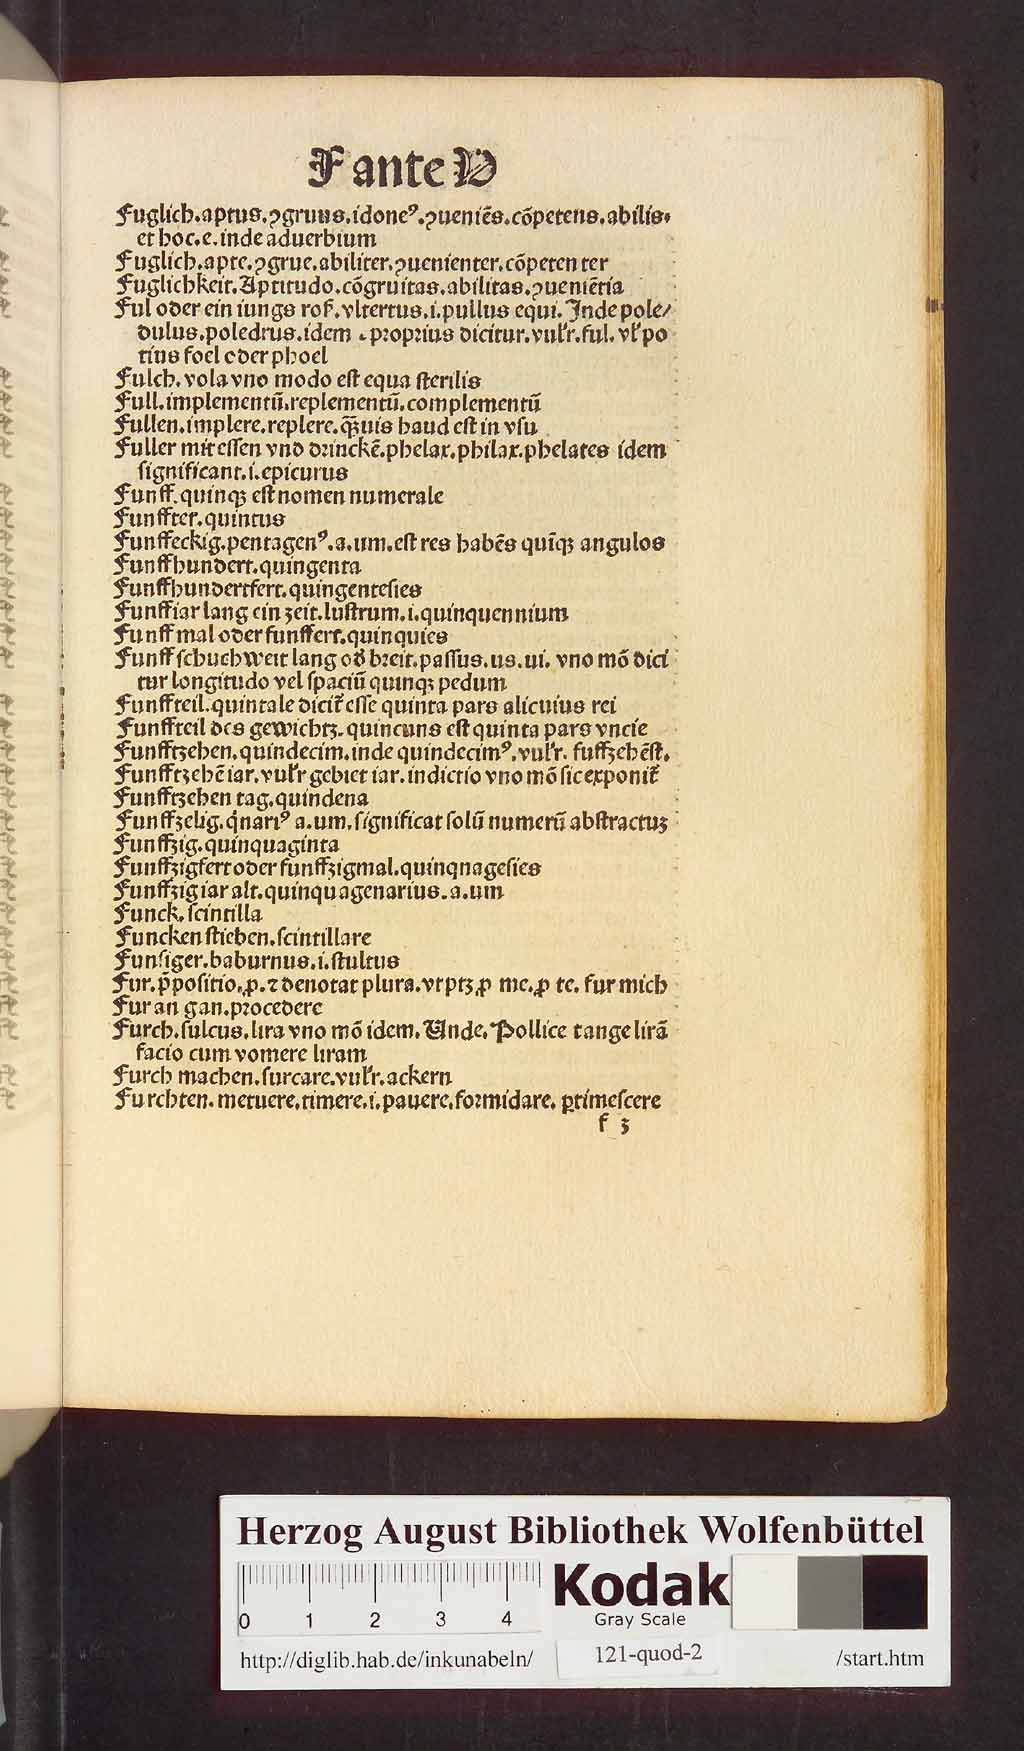 F ante V
Fuglich.aptus.ꝯgruus.idoneꝰ.ꝯueniēs.cōpetens.abilis.
et hoc.e.inde aduerbium
Fuglich.apte.ꝯgrue.abiliter.ꝯuenienter.cōpeten ter
Fuglichkeit.Aptitudo.cōgruitas.abilitas.ꝯueniētia
Ful oder ein iungs roß.vltertus.i.pullus equi.Inde pole/
dulus.poledrus.idem .proprius dicitur.vulr̄.ful.vl̄ po
tius foel oder phoel
Fulch.vola vno modo est equa sterilis
Full.implementū.replementū.complementū
Fullen.implere.replere.q̄uis haud est in vsu
Fuller mit essen vnd drinckē.phelax.philax.phelates idem
significant.i.epicurus
Funff.quinqꝫ est nomen numerale
Funffter.quintus
Funffeckig.pentagenꝰ.a.um.est res habēs quīqꝫ angulos
Funffhundert.quingenta
Funffhundertfert.quingentesies
Funffiar lang ein zeit.lustrum.i.quinquennium
Funff mal oder funffert.quinquies
Funff schuchweit lang od breit.passus.us.ui. vno mō dici
tur longitudo vel spaciū quinqꝫ pedum
Funffteil.quintale dicit̄ esse quinta pars alicuius rei
Funffteil des gewichtz.quincuns est quinta pars vncie
Funfftzehen.quindecim.inde quindecimꝰ.vulr̄. fuffzehēst.
Funfftzehē iar.vulr̄ gebiet iar.indictio vno mō sic exponit̄
Funfftzehen tag.quindena
Funffzelig.qͥnariꝰ a.um.significat solū numerū abstractuꝫ
Funffzig.quinquaginta
Funffzigfert oder funffzigmal.quinqnagesies
Funffzig iar alt.quinquagenarius.a.um
Funck.scintilla
Funcken stieben.scintillare
Funsiger.baburnus.i.stultus
Fur.p̄positio.ꝓ.⁊ denotat plura.vtptꝫ ꝓ me.ꝓ te. fur mich
Fur an gan.procedere
Furch.sulcus.lira vno mō idem.Unde.Pollice tange lirā
facio cum vomere liram
Furch machen.surcare.vulr̄.ackern
Furchten. metuere.timere.i.pauere.formidare. ꝑtimescere
f 3
Herzog August Bibliothek Wolfenbüttel
0 1 2 3 4
Kodak
Gray Scale
http://diglib.hab.de/inkunabeln/
121-quod-2
/start.htm